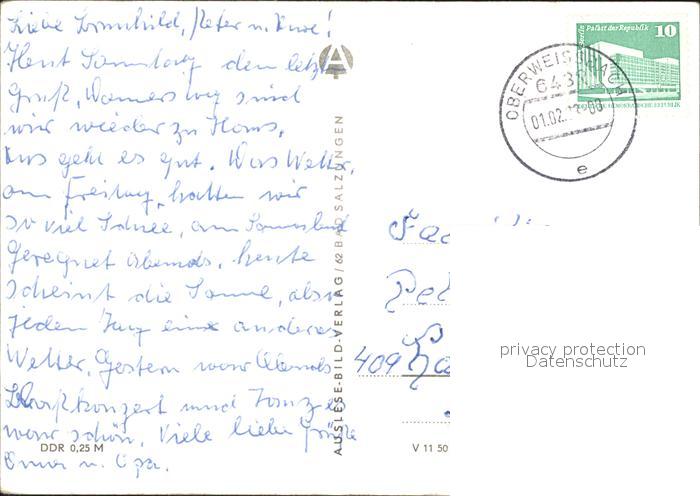 Liebe Brunhild, Peter u. Uwe!
Heut Sonntag den letzten
Gruß, Donnerstag sind
wir wieder zu Haus,
Uns geht es gut. Das Wetter,
am Freitag, hatten wir
so viel Schnee, am Sonnabend
Geregnet Abends, heute
scheint die Sonne, also
jeden Tag eine anderes
Wetter. Gestern war Abends
konzert und Tanz
war schön. Viele liebe Grüße
Oma u. Opa.
DDR 0,25 M
AUSLESE-BILD-VERLAG / 62 BAD SALZUNGEN
V 11 50
Palast der Republik
10
OBERWEISSBACH
01.02.
e
409 Ha
privacy protection
Datenschutz